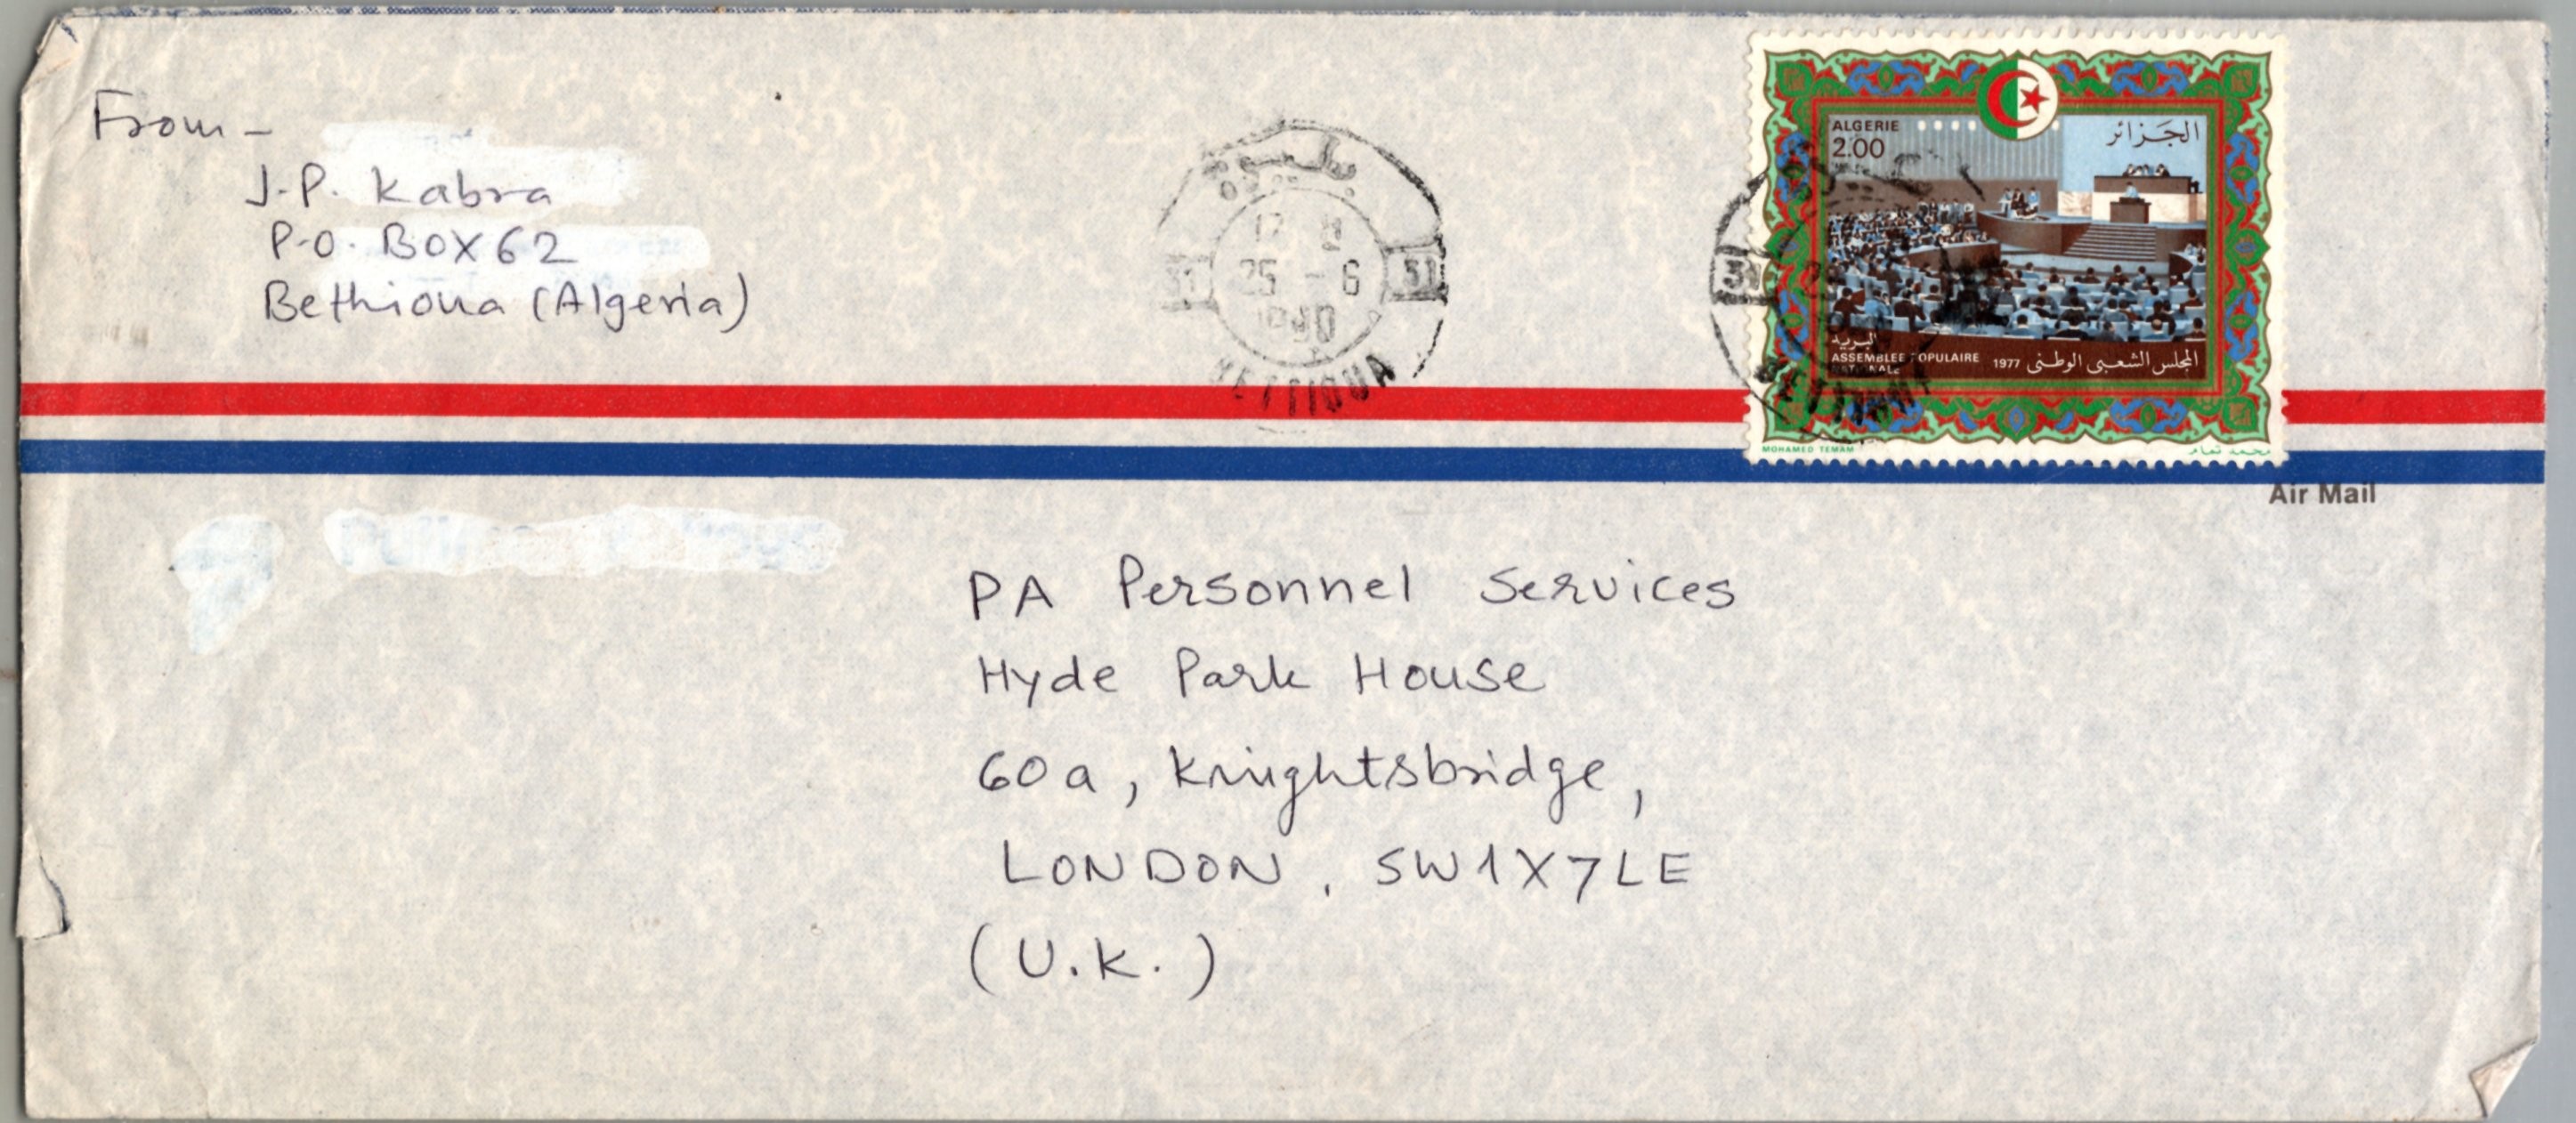 From -
J.P. Kabra
P.O. BOX 62
Bethioua (Algeria)
17
25 - 6
1980
31
31
31
ALGERIE
2.00
الجَـزائر
البريد
ASSEMBLEE POPULAIRE
NATIONALE
1977 المجلس الشعبى الوطنى
MOHAMED TEMAM
محمد تمام
Air Mail
PA Personnel Services
Hyde Park House
60a, Knightsbridge,
LONDON, SW1X7LE
(U.K.)